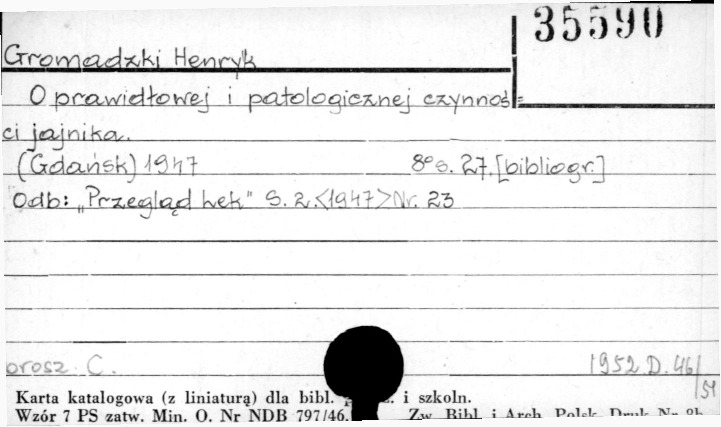 35590
Gromadzki Henryk
O prawidłowej i patologicznej czynnoś=
ci jajnika.
(Gdańsk) 1947 8° s. 27. [bibliogr.]
Odb: „Przegląd Lek" S. 2. <1947> Nr. 23
orosz. C. 1952 D. 46/51
Karta katalogowa (z liniaturą) dla bibl. i szkoln.
Wzór 7 PS zatw. Min. O. Nr NDB 797/46. Zw. Bibl. i Arch. Polsk. Druk